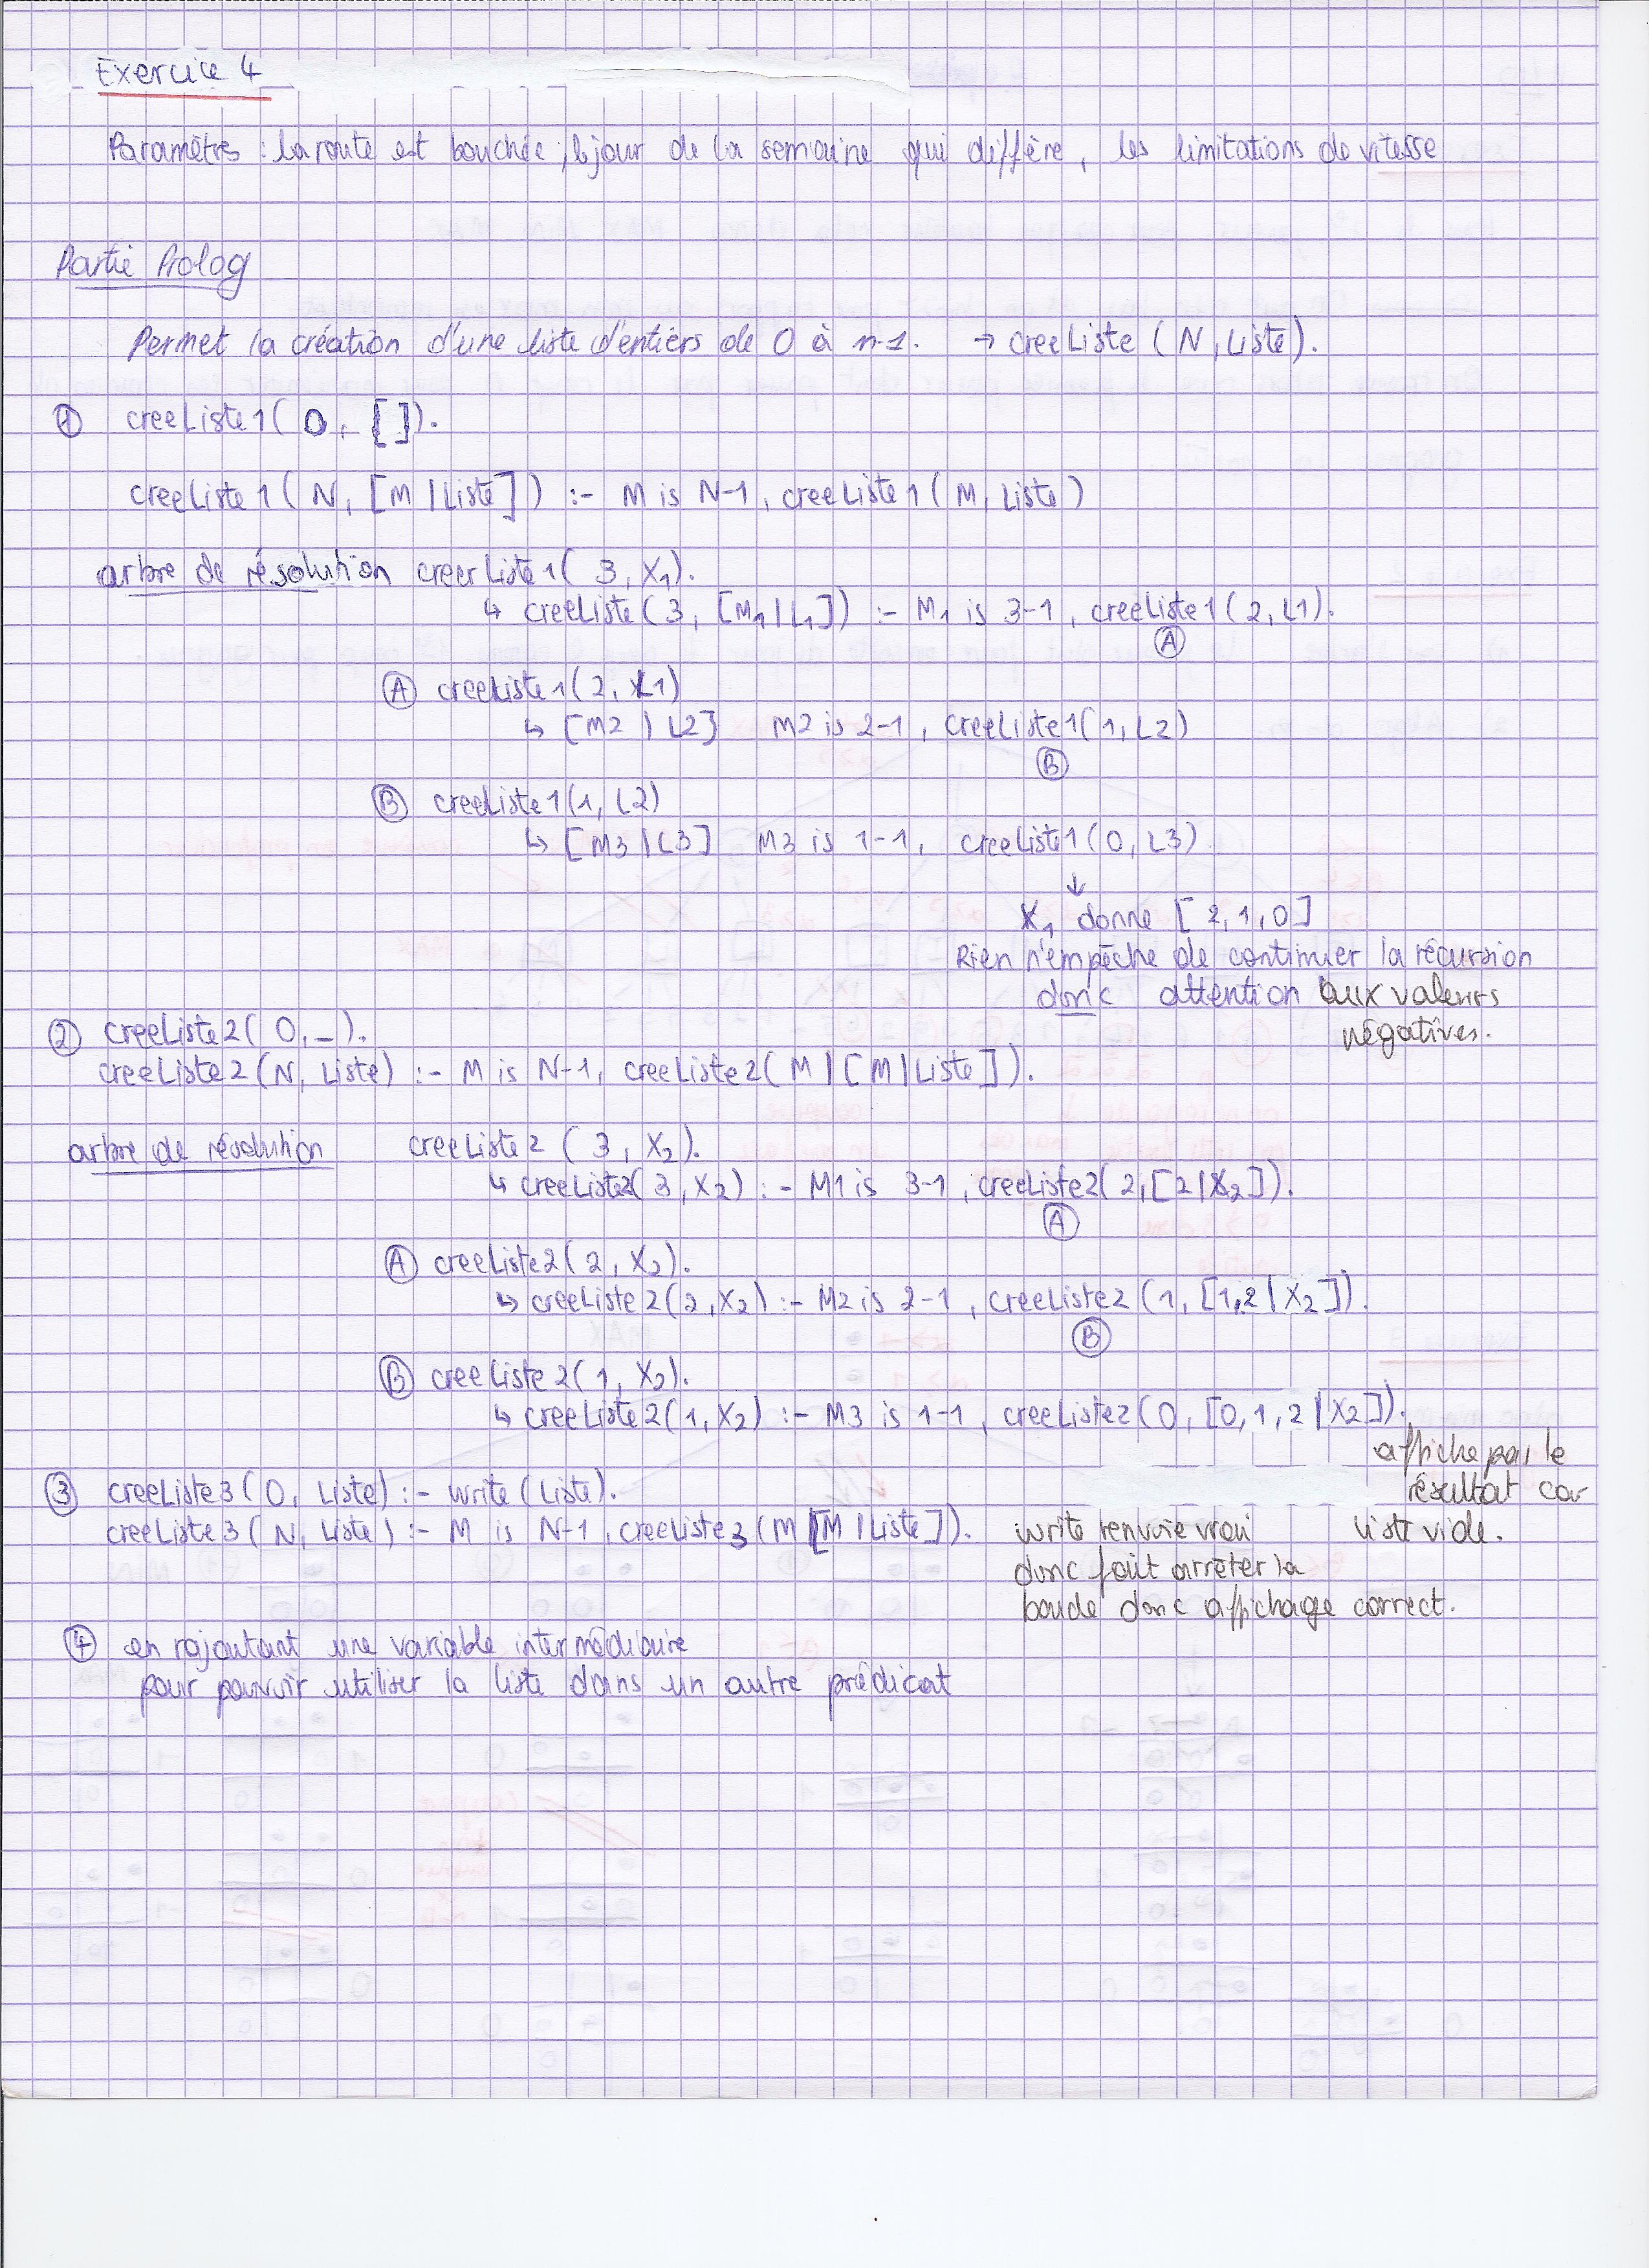 Exercice 4
Paramètres : la route est bouchée, le jour de la semaine qui diffère, les limitations de vitesse
Partie Prolog
Permet la création d'une liste d'entiers de 0 à n-1. → creeListe (N, Liste).
① creeListe1( 0, []).
creeListe1 ( N, [M | Liste] ) :- M is N-1, creeListe1 ( M, Liste )
arbre de résolution creerListe1( 3, X1).
↳ creeListe( 3, [M1 | L1] ) :- M1 is 3-1, creeListe1 (2, L1).
Ⓐ
Ⓐ creeListe1( 2, L1)
↳ [M2 | L2] M2 is 2-1, creeListe1( 1, L2)
Ⓑ
Ⓑ creeListe1(1, L2)
↳ [M3 | L3] M3 is 1-1, creeListe1 (0, L3)
↓
X1 donne [ 2, 1, 0 ]
Rien n'empêche de continuer la récursion
donc attention aux valeurs
négatives.
② creeListe2( 0, _ ).
creeListe2 (N, Liste) :- M is N-1, creeListe2( M | [M | Liste] ).
arbre de résolution creeListe2 ( 3, X2).
↳ creeListe2( 3, X2) :- M1 is 3-1, creeListe2( 2, [2 | X2] ).
Ⓐ
Ⓐ creeListe2( 2, X2).
↳ creeListe2 (2, X2) :- M2 is 2-1, creeListe2 (1, [1,2 | X2] ).
Ⓑ
Ⓑ creeListe2( 1, X2).
↳ creeListe2( 1, X2) :- M3 is 1-1, creeListe2( 0, [0, 1, 2 | X2] ).
affiche pas le
résultat car
liste vide.
③ creeListe3 ( 0, Liste) :- write (Liste).
creeListe3 ( N, Liste ) :- M is N-1, creeListe3 (M [M | Liste] ).
write renvoie vrai
donc fait arrêter la
boucle donc affichage correct.
④ en rajoutant une variable intermédiaire
pour pouvoir utiliser la liste dans un autre prédicat